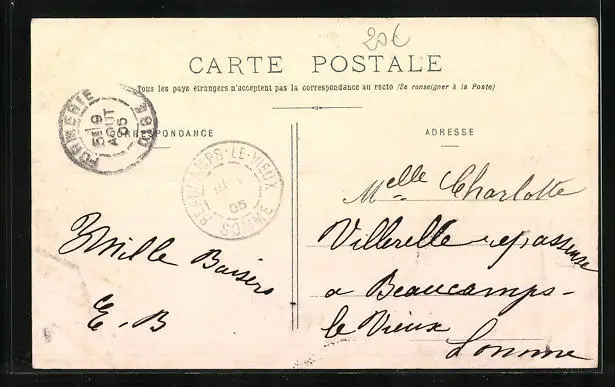 20€
CARTE POSTALE
Tous les pays étrangers n'acceptent pas la correspondance au recto (Se renseigner à la Poste)
CORRESPONDANCE
ADRESSE
FORMERIE
5E 19
AOUT
05
OISE
BEAUCAMPS-LE-VIEUX
05
SOMME
Mille Baisers
E. B
Melle Charlotte
Villerelle repasseuse
a Beaucamps-
le Vieux
Somme